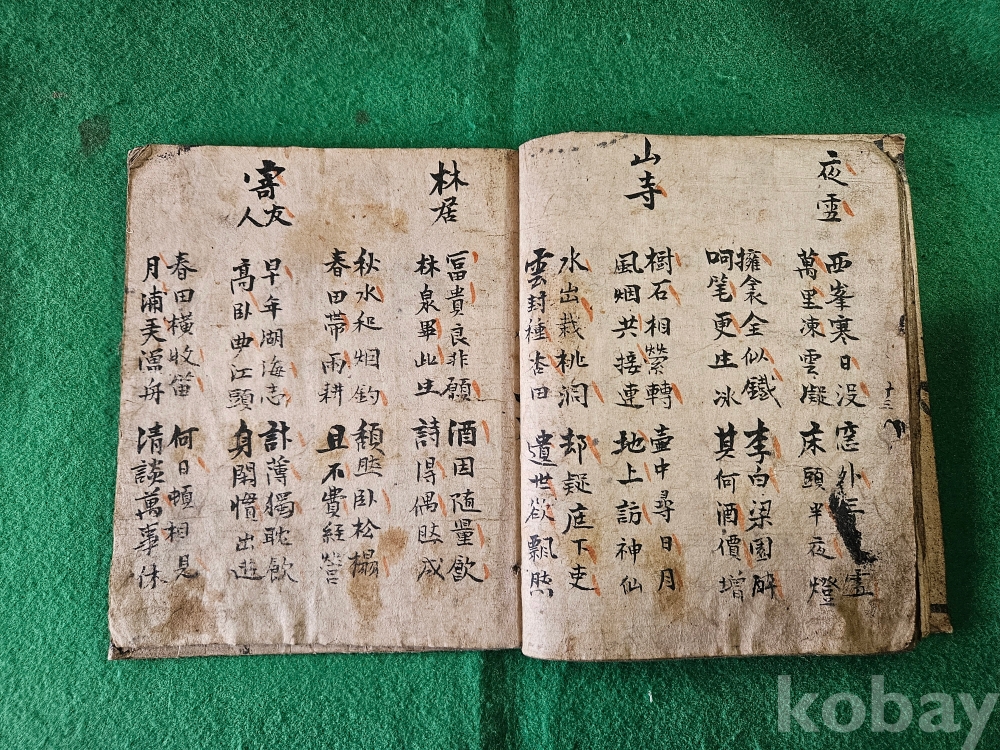 夜雪
西峯寒日没 窓外三 雪
萬里凍雲凝 床頭半夜燈
擁衾全似鐵 李白梁園醉
呵笔更生冰 其何酒價增
山寺
樹石相縈轉 壷中尋日月
風烟共接連 地上訪神仙
水出栽桃洞 却疑庭下吏
雲封種杏田 遺世欲飄然
林居
冨貴良非願 酒因随量飮
林泉畢此生 詩得偶然成
秋水和烟釣 頹然臥松榻
春田帶雨耕 且不費經營
寄友人
早年湖海志 計薄獨耽飮
高臥曲江頭 身閑慣出遊
春田橫收笛 何日頓相見
月浦美漁舟 清談萬事休
十三
kobay